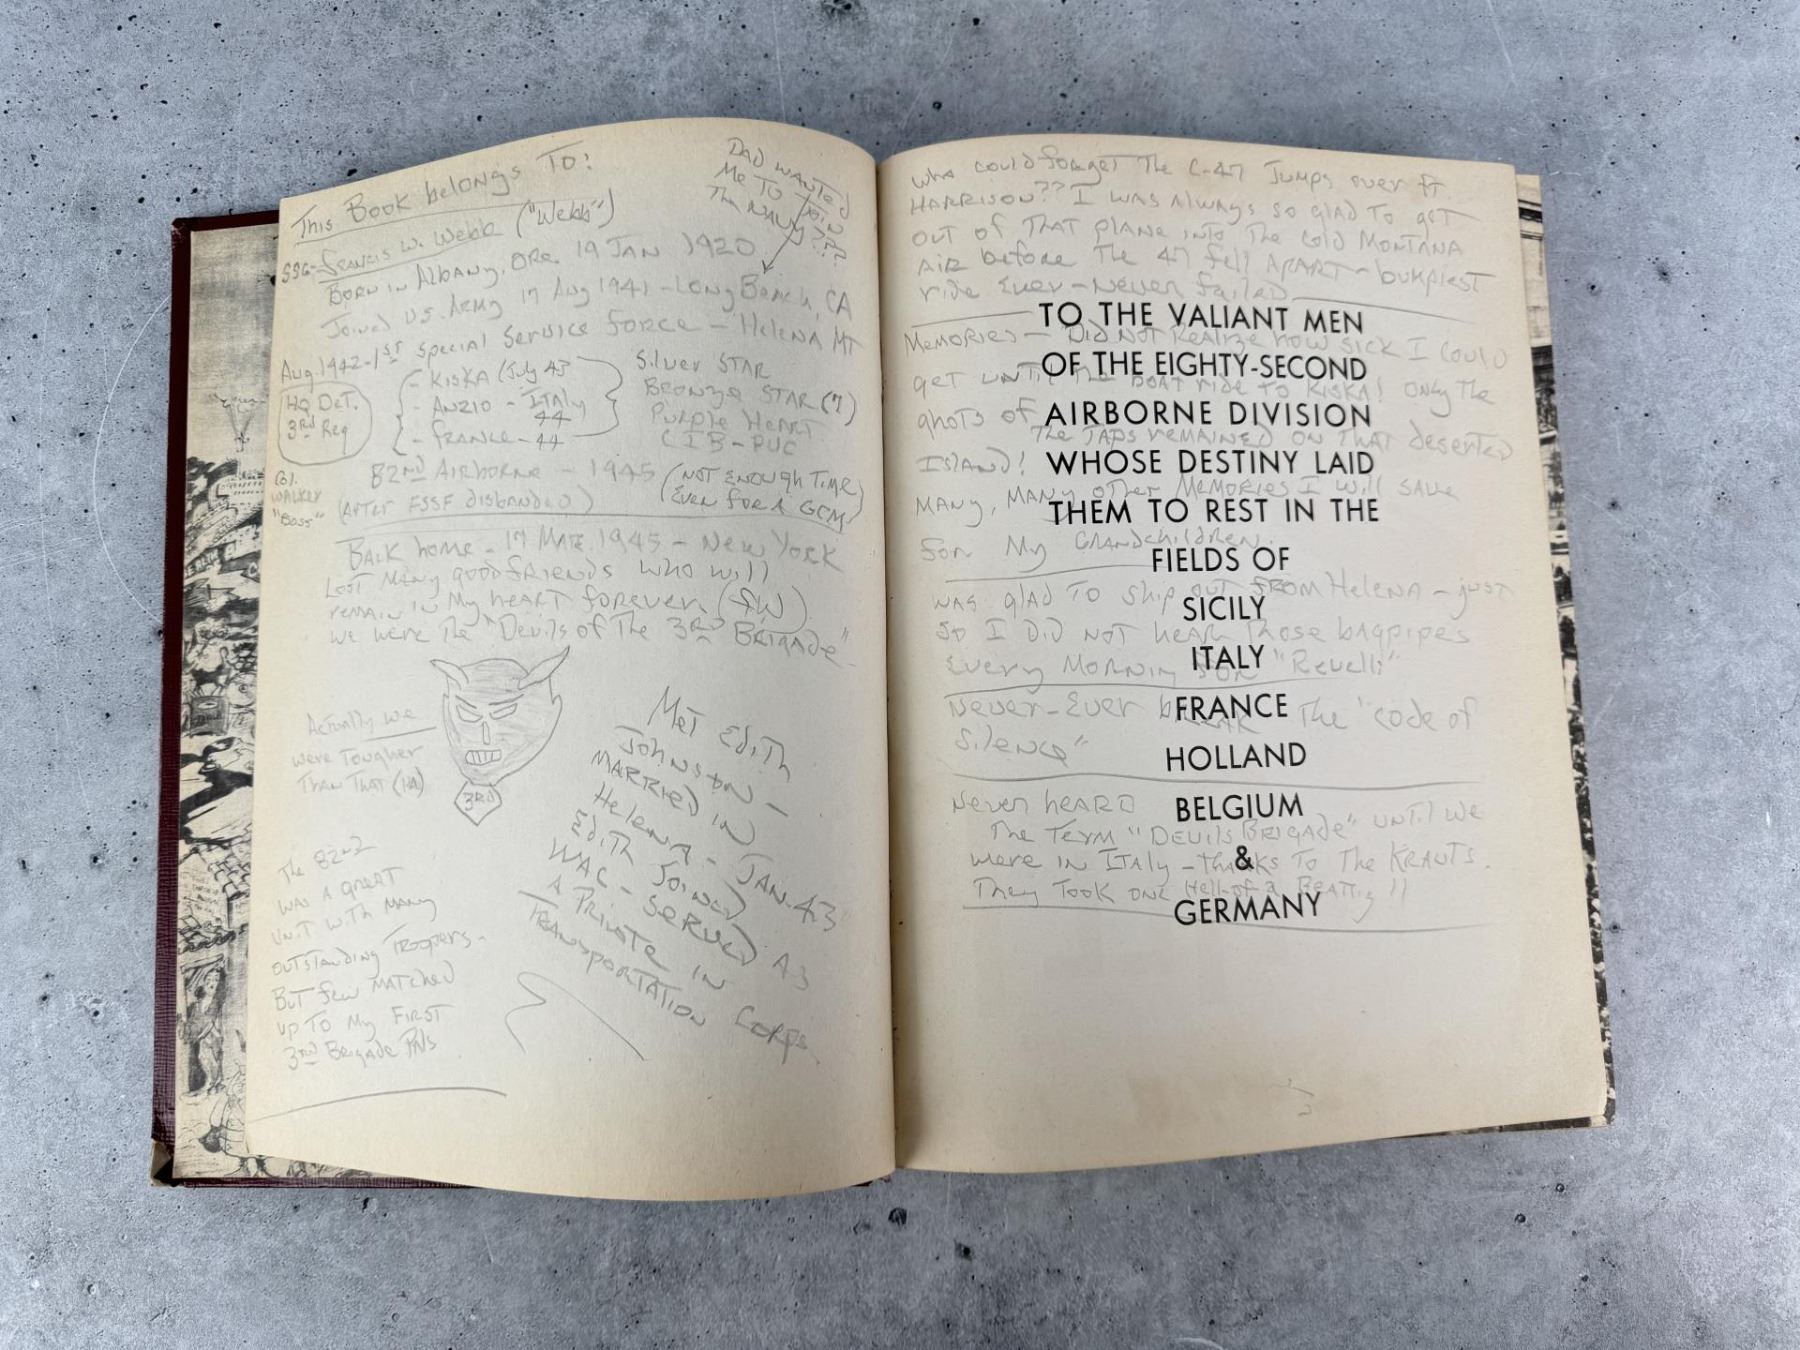 This Book belongs To:
SSG- Francis W. Webb ("Webb")
Born in Albany, Ore. 19 Jan 1920
Joined U.S. Army 17 Aug 1941 - Long Beach, CA
Dad wanted
Me To Join
The Navy???
Aug. 1942 - 1ST Special Service Force - Helena MT
HQ Det.
3rd Reg
- Kiska (July 43
- Anzio - Italy
44
- France - 44
Silver STAR
Bronze STAR
Purple Heart
C.I.B - PUC
82nd Airborne - 1945 (NOT Enough Time
Even for A GCM)
(After FSSF disbanded)
Walker
"Boss"
Back home - 17 Mar. 1945 - New York
Lost Many good friends who will
remain in My heart forever. (FW)
We were The "Devils of The 3rd Brigade"
Actually we
were Tougher
Than That (HA)
3RD
Met Edith
Johnston -
Married in
Helena - Jan. 43
Edith Joined
WAC - Served As
A Private in
Transportation Corps.
The 82nd
was a great
unit with many
outstanding Troopers -
But few matched
up To My First
3rd Brigade
Who could forget The C-47 Jumps over Ft
Harrison?? I was always so glad To get
out of That plane into The cold Montana
Air before The 47 fell Apart - bumpiest
ride Ever - Never failed
Memories - Did Not Realize how sick I could
get until The Boat ride to Kiska! Only the
ghosts of The Japs remained on That deserted
Island!
Many, Many other Memories I will save
for My Grandchildren.
Was glad To ship out From Helena - just
so I did not hear Those bagpipes
Every Morning For "Revelli"
Never - Ever break The "code of
Silence"
Never heard
The Term "Devils Brigade" until we
were in Italy - thanks To The Krauts.
They Took one Hell-of-a Beating!!
TO THE VALIANT MEN
OF THE EIGHTY-SECOND
AIRBORNE DIVISION
WHOSE DESTINY LAID
THEM TO REST IN THE
FIELDS OF
SICILY
ITALY
FRANCE
HOLLAND
BELGIUM
&
GERMANY